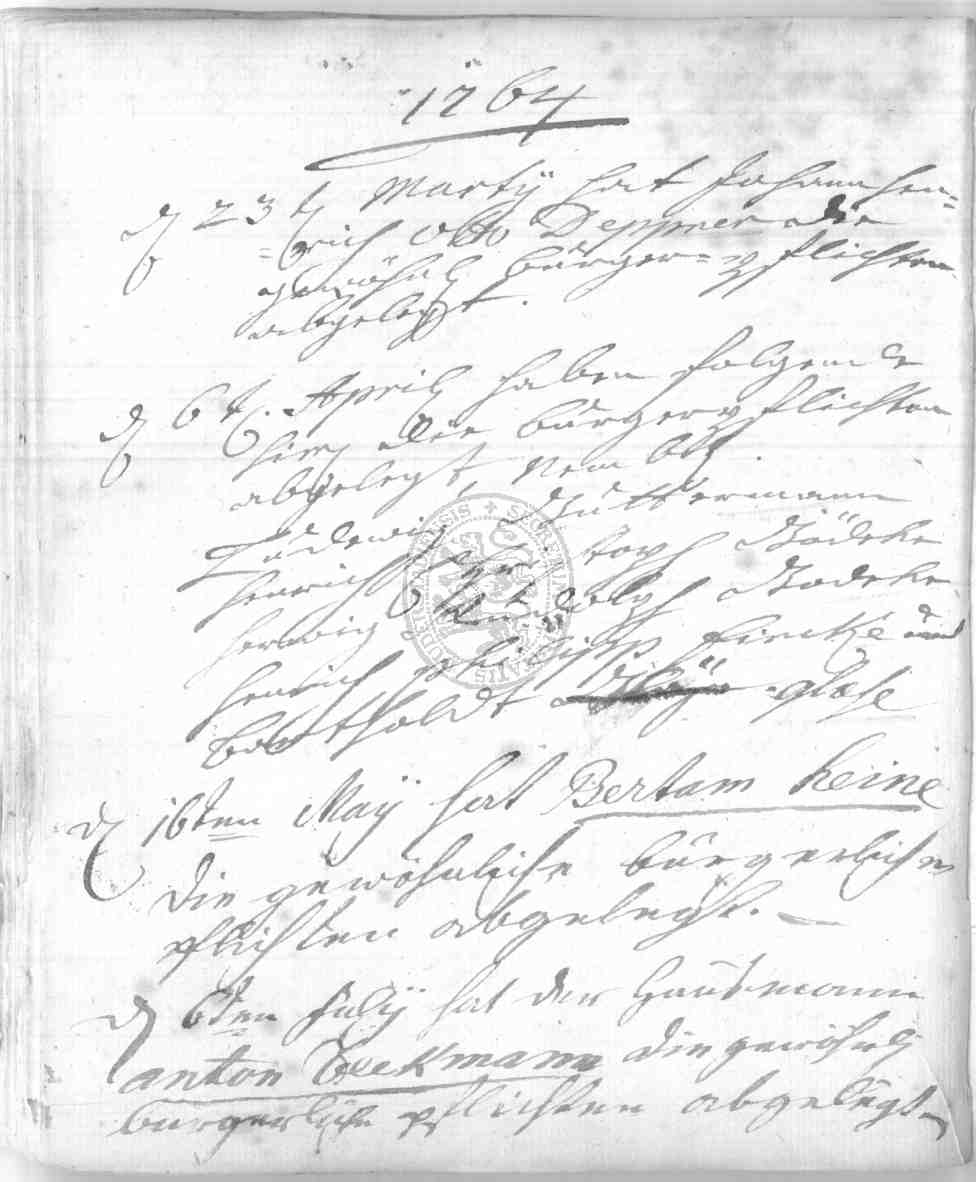 1764
d 23t Martÿ hat Johann Hen=
=rich Otto Deppmer die
gewöhnl. bürger=pflichten
abgelegt.
d 6t. April haben folgende
hies. die bürgerpflichten
abgelegt, Nembl.
Ludewig Guttermann
Henrich Bödeke
Herwig Bodeke
Henrich Philipp Fincke und
Bartholdt Glase
d 16ten Maÿ hat Bertam Heine
die gewöhnliche bürgerliche
pflichten abgelegt.
d 6ten Julÿ hat der Hausmann
anton Beckmann die gewöhnl.
bürgerliche pflichten abgelegt